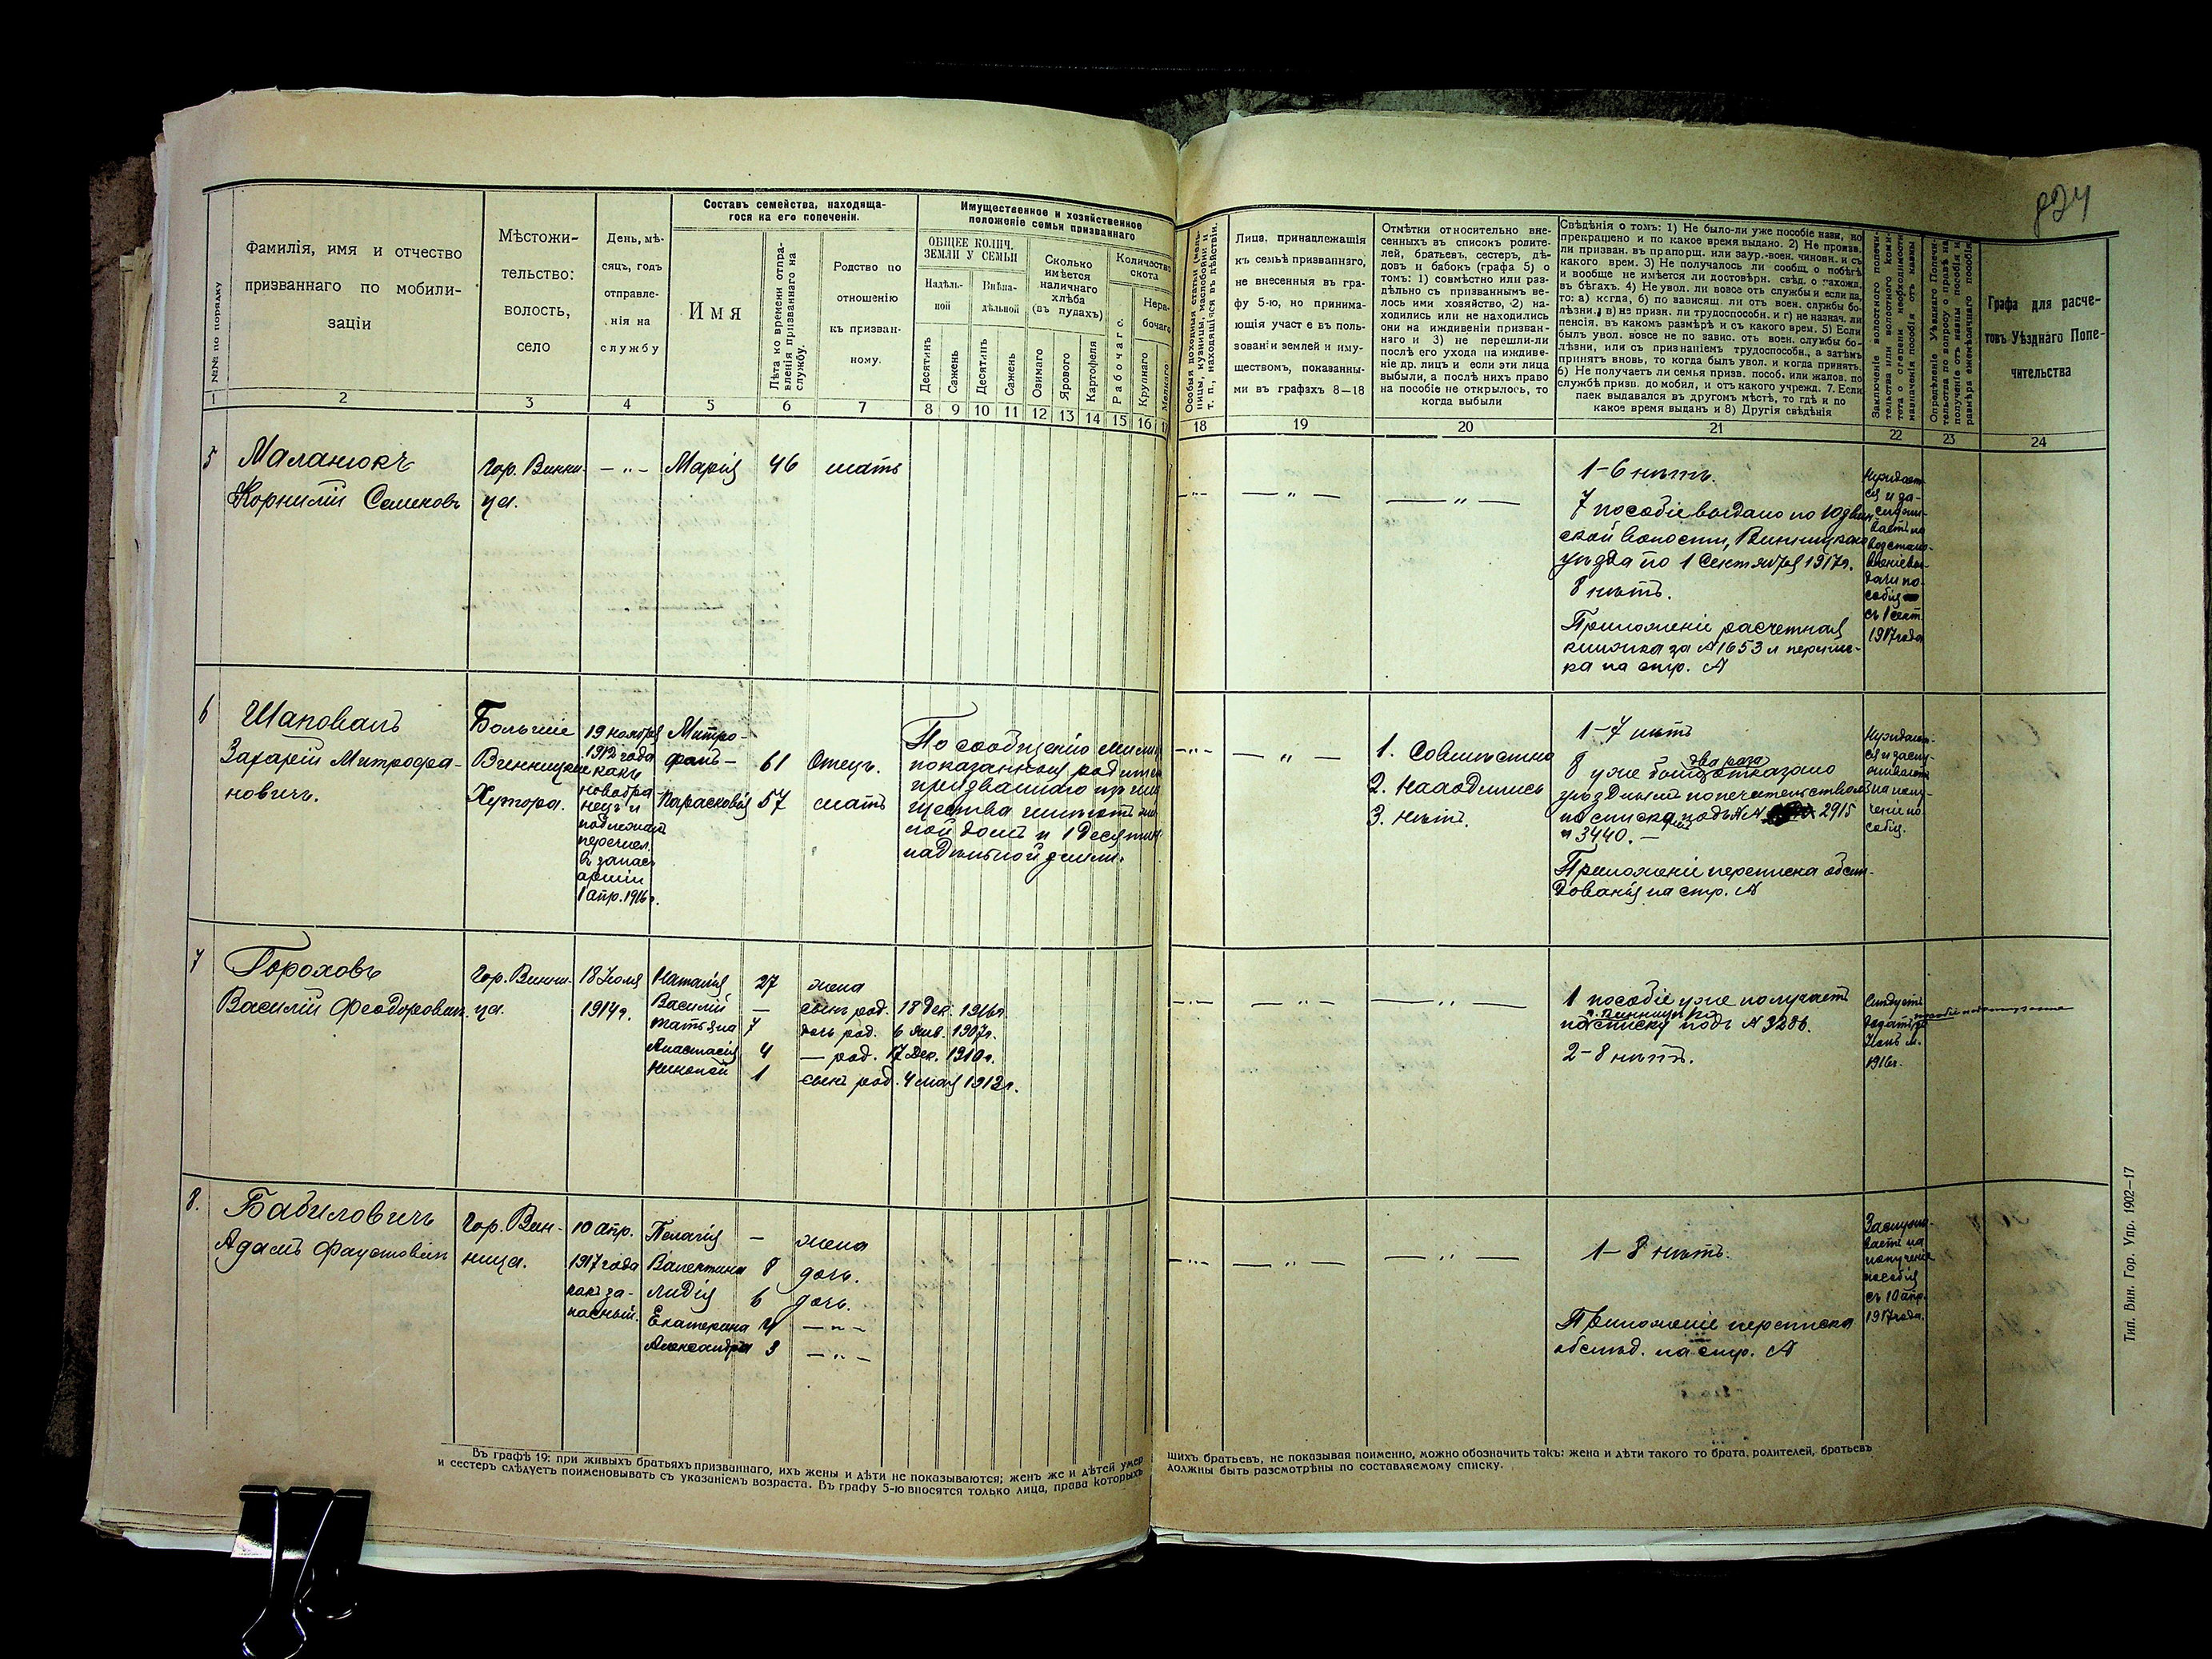 824
№№ по порядку
Фамилія, имя и отчество
призваннаго по мобили-
заціи
Мѣстожи-
тельство:
волость,
село
День, мѣ-
сяцъ, годъ
отправле-
нія на
службу
Составъ семейства, находяща-
гося на его попеченіи.
Имя
Лѣта ко времени отпра-
вленія призваннаго на
службу.
Родство по
отношенію
къ призван-
ному.
Имущественное и хозяйственное
положеніе семьи призваннаго
ОБЩЕЕ КОЛИЧ.
ЗЕМЛИ У СЕМЬИ
Надѣль-
ной
Внѣна-
дѣльной
Десятинъ
Сажень
Десятинъ
Сажень
Сколько
имѣется
наличнаго
хлѣба
(въ пудахъ)
Озимаго
Ярового
Картофеля
Количество
скота
Рабочаго
Нера-
бочаго
Крупнаго
Мелкаго
Особыя доходныя статьи (мель-
ницы, кузницы, маслобойни и
т. п., находящіяся въ дѣйствіи.
Лица, принадлежащія
къ семьѣ призваннаго,
не внесенныя въ гра-
фу 5-ю, но принима-
ющія участіе въ поль-
зованіи землей и иму-
ществомъ, показанны-
ми въ графахъ 8—18
Отмѣтки относительно вне-
сенныхъ въ списокъ родите-
лей, братьевъ, сестеръ, дѣ-
довъ и бабокъ (графа 5) о
томъ: 1) совмѣстно или раз-
дѣльно съ призваннымъ ве-
лось ими хозяйство, 2) на-
ходились или не находились
они на иждивеніи призван-
наго и 3) не перешли-ли
послѣ его ухода на иждиве-
ніе др. лицъ и если эти лица
выбыли, а послѣ нихъ право
на пособіе не открылось, то
когда выбыли
Свѣдѣнія о томъ: 1) Не было-ли уже пособіе назн, но
прекращено и по какое время выдано. 2) Не произв.
ли призван. въ прапорщ. или заур.-воен. чиновн. и съ
какого врем. 3) Не получалось ли сообщ. о побѣгѣ
и вообще не имѣется ли достовѣрн. свѣд. о нахожд.
въ бѣгахъ. 4) Не увол. ли вовсе отъ службы и если да,
то: а) когда, б) по зависящ. ли отъ воен. службы бо-
лѣзни, в) не призн. ли трудоспособн. и г) не назнач. ли
пенсія, въ какомъ размѣрѣ и съ какого врем. 5) Если
былъ увол. вовсе не по завис. отъ воен. службы бо-
лѣзни, или съ признаніемъ трудоспособн., а затѣмъ
принятъ вновь, то когда былъ увол. и когда принятъ.
6) Не получаетъ ли семья призв. пособ. или жалов. по
службѣ призв. до мобил, и отъ какого учрежд. 7. Если
паек выдавался въ другомъ мѣстѣ, то гдѣ и по
какое время выданъ и 8) Другія свѣдѣнія
Заключеніе волостного попечи-
тельства или волостного коми-
тета о степени необходимости
назначенія пособія отъ казны
Опредѣленіе Уѣзднаго Попечи-
тельства по вопросу о правѣ на
полученіе отъ казны пособія и
размѣра ежемѣсячнаго пособія
Графа для расче-
товъ Уѣзднаго Попе-
чительства
1 2 3 4 5 6 7 8 9 10 11 12 13 14 15 16 18 19 20 21 22 23 24
5 Маланюкъ
Корнилій Семеновъ
Гор. Винни-
ца.
— „ —
Марія 46 мать
— „ —
— „ —
— „ —
1-6 нѣтъ.
7 пособіе выдано по Юзвин
ской волости, Винницкаго
уѣзда по 1 Сентября 1917г.
8 нѣтъ.
Приложеніе расчетная
книжка за № 1653 и перепис-
ка на стр. №
Нуждает-
ся и за-
служи-
ваетъ на
возстано-
вленіе вы-
дачи по-
собія
съ 1 сент.
1917 года
6 Шаповалъ
Захарій Митрофа-
новичъ.
Большіе
Винницкіе
Хутора.
19 ноября
1912 года
какъ
новобра-
нецъ и
подлежит
перечисл.
въ запас
арміи
1 апр. 1916г.
Митро-
фанъ — 61 Отецъ.
Парасковія 57 мать
По сообщенію
показанныя
призваннаго
и 1 десятин
надѣльной земли.
— „ —
— „ —
1. Совмѣстно
2. Находились
3. Нѣтъ.
1-7 нѣтъ
два раза
8 уже было отказано
уѣзднымъ попечительствомъ
по спискамъ подъ №№ 2915
и 3440. —
Приложеніе переписка обслѣ-
дованія на стр. №
Нуждает-
ся и заслу-
живаетъ
на полу-
ченіе по-
собія.
7 Гороховъ
Василій Феодоровъ.
Гор. Винни-
ца.
18 Іюля
1914г.
Наталія 27 жена
Василій — сынъ род. 18 Дек. 1916г.
Татьяна 7 дочь род. 6 янв. 1907г.
Анастасія 4 — род. 17 Дек. 1910г.
Николай 1 сынъ род. 4 мая 1912г.
— „ —
— „ —
— „ —
1 пособіе уже получаетъ
г. Винницы
по списку подъ № 3286.
2-8 нѣтъ.
Слѣдуетъ
1916г.
8. Бабиловичъ
Адамъ Фаустовичъ
Гор. Вин-
ница.
10 апр.
1917 года
какъ за-
пасный.
Пелагія — жена
Валентина 8 дочь.
Лидія 6 дочь.
Екатерина 4 — „ —
Александра 3 — „ —
— „ —
— „ —
— „ —
1-8 нѣтъ.
Приложеніе переписка
обслѣд. на стр. №
Заслужи-
ваетъ на
полученіе
пособія
съ 10 апр.
1917 года.
Въ графѣ 19: при живыхъ братьяхъ призваннаго, ихъ жены и дѣти не показываются; женъ же и дѣтей умер
шихъ братьевъ, не показывая поименно, можно обозначить такъ: жена и дѣти такого то брата. родителей, братьевъ
и сестеръ слѣдуетъ поименовывать съ указаніемъ возраста. Въ графу 5-ю вносятся только лица, права которыхъ
должны быть разсмотрѣны по составляемому списку.
Тип. Вин. Гор. Упр. 1902—17